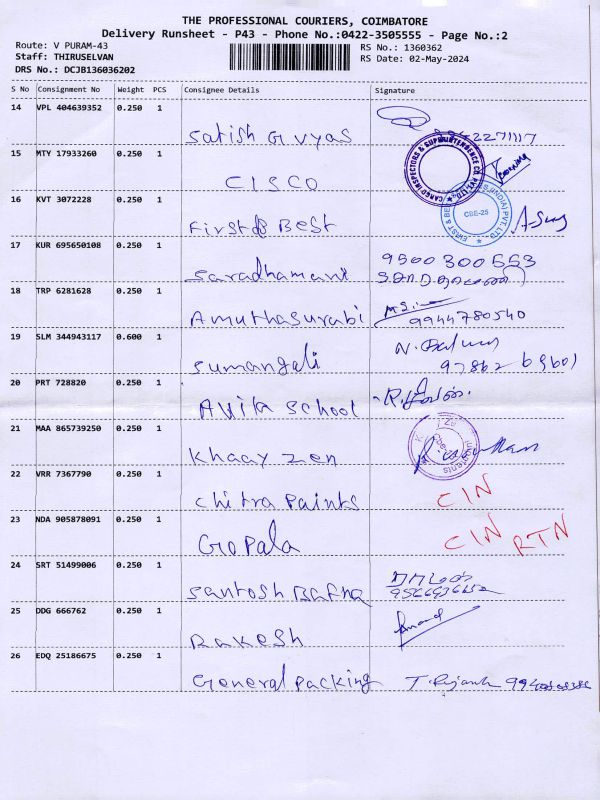 THE PROFESSIONAL COURIERS, COIMBATORE
Delivery Runsheet - P43 - Phone No.:0422-3505555 - Page No.:2
Route: V PURAM-43
Staff: THIRUSELVAN
DRS No.: DCJB136036202
RS No.: 1360362
RS Date: 02-May-2024
S No Consignment No Weight PCS Consignee Details Signature
14 VPL 404639352 0.250 1 Satish G vyas
15 MTY 17933260 0.250 1 CISCO
CARGO INSPECTORS & SUPERINTENDENCE CO. PVT. LTD.
16 KVT 3072228 0.250 1 First & Best
CBE-25
17 KUR 695650108 0.250 1 Saradhamani 9500300553
18 TRP 6281628 0.250 1 Amuthasurabi 9944780540
19 SLM 344943117 0.600 1 Sumangali
20 PRT 728820 0.250 1 Avila School
21 MAA 865739250 0.250 1 Khaay zen
22 VRR 7367790 0.250 1 Chitra Paints CIN
23 NDA 905878091 0.250 1 Gopala CIN RTN
24 SRT 51499006 0.250 1 Santosh Bafna
25 DDG 666762 0.250 1 Rakesh Anand
26 EDQ 25186675 0.250 1 General Packing